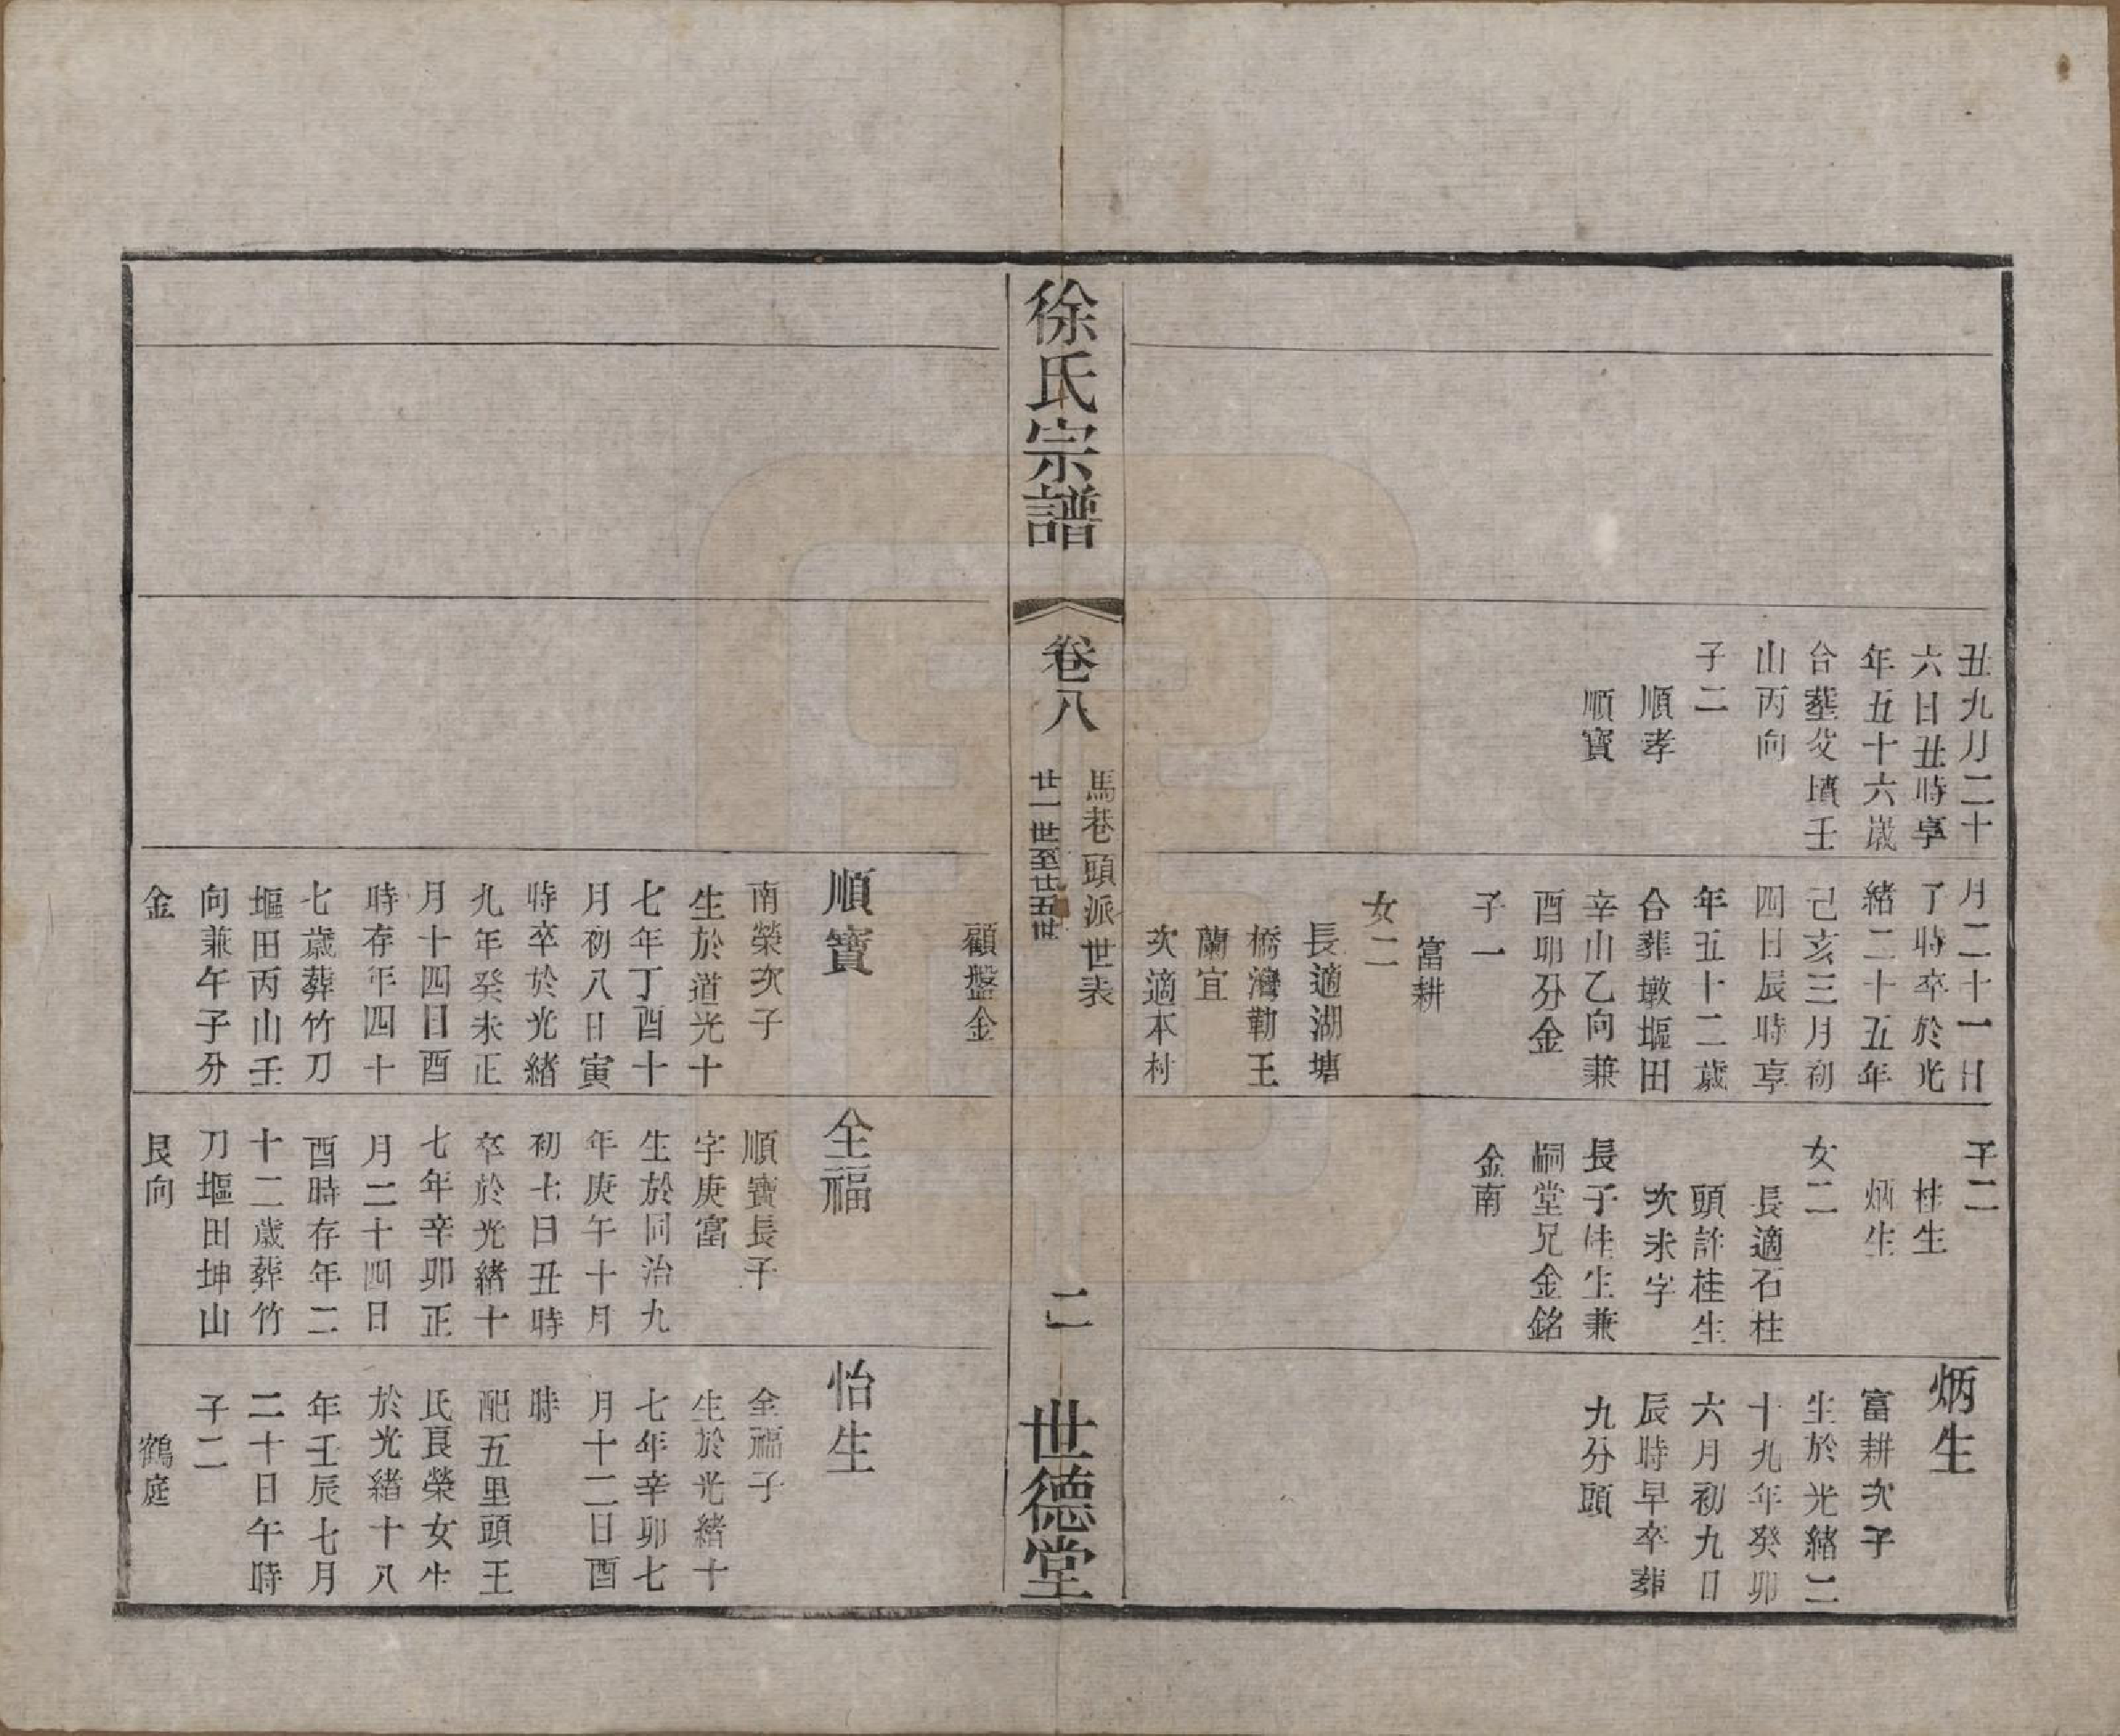 丑九月二十
六日丑時享
年五十六歲
合塟父墳壬
山丙向
子二
順孝
順寶
月二十一日
丁時卒於光
緒二十五年
己亥三月初
四日辰時享
年五十二歲
合葬墩堰田
辛山乙向兼
酉卯分金
子一
富耕
女二
長適湖塘
橋灣勒王
蘭宜
次適本村
子二
桂生
炳生
女二
長適石柱
頭許桂生
次未字
長子桂生兼
嗣堂兄金銘
金南
炳生
富耕次子
生於光緒二
十九年癸卯
六月初九日
辰時早卒葬
九分頭
徐氏宗譜
卷八
馬巷頭派世表
廿一世至廿五世
二
世德堂
顧盤金
順寶
南榮次子
生於道光十
七年丁酉十
月初八日寅
時卒於光緒
九年癸未正
月十四日酉
時存年四十
七歲葬竹刀
堰田丙山壬
向兼午子分
金
全福
順寶長子
字庚富
生於同治九
年庚午十月
初七日丑時
卒於光緒十
七年辛卯正
月二十四日
酉時存年二
十二歲葬竹
刀堰田坤山
艮向
怡生
全福子
生於光緒十
七年辛卯七
月十二日酉
時
配五里頭王
氏良榮女生
於光緒十八
年壬辰七月
二十日午時
子二
鶴庭